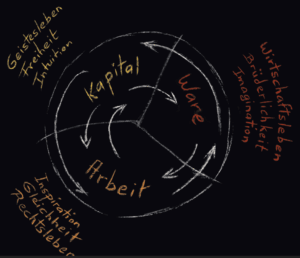 Geistesleben
Freiheit
Intuition
Kapital
Ware
Wirtschaftsleben
Brüderlichkeit
Imagination
Arbeit
Inspiration
Gleichheit
Rechtsleben